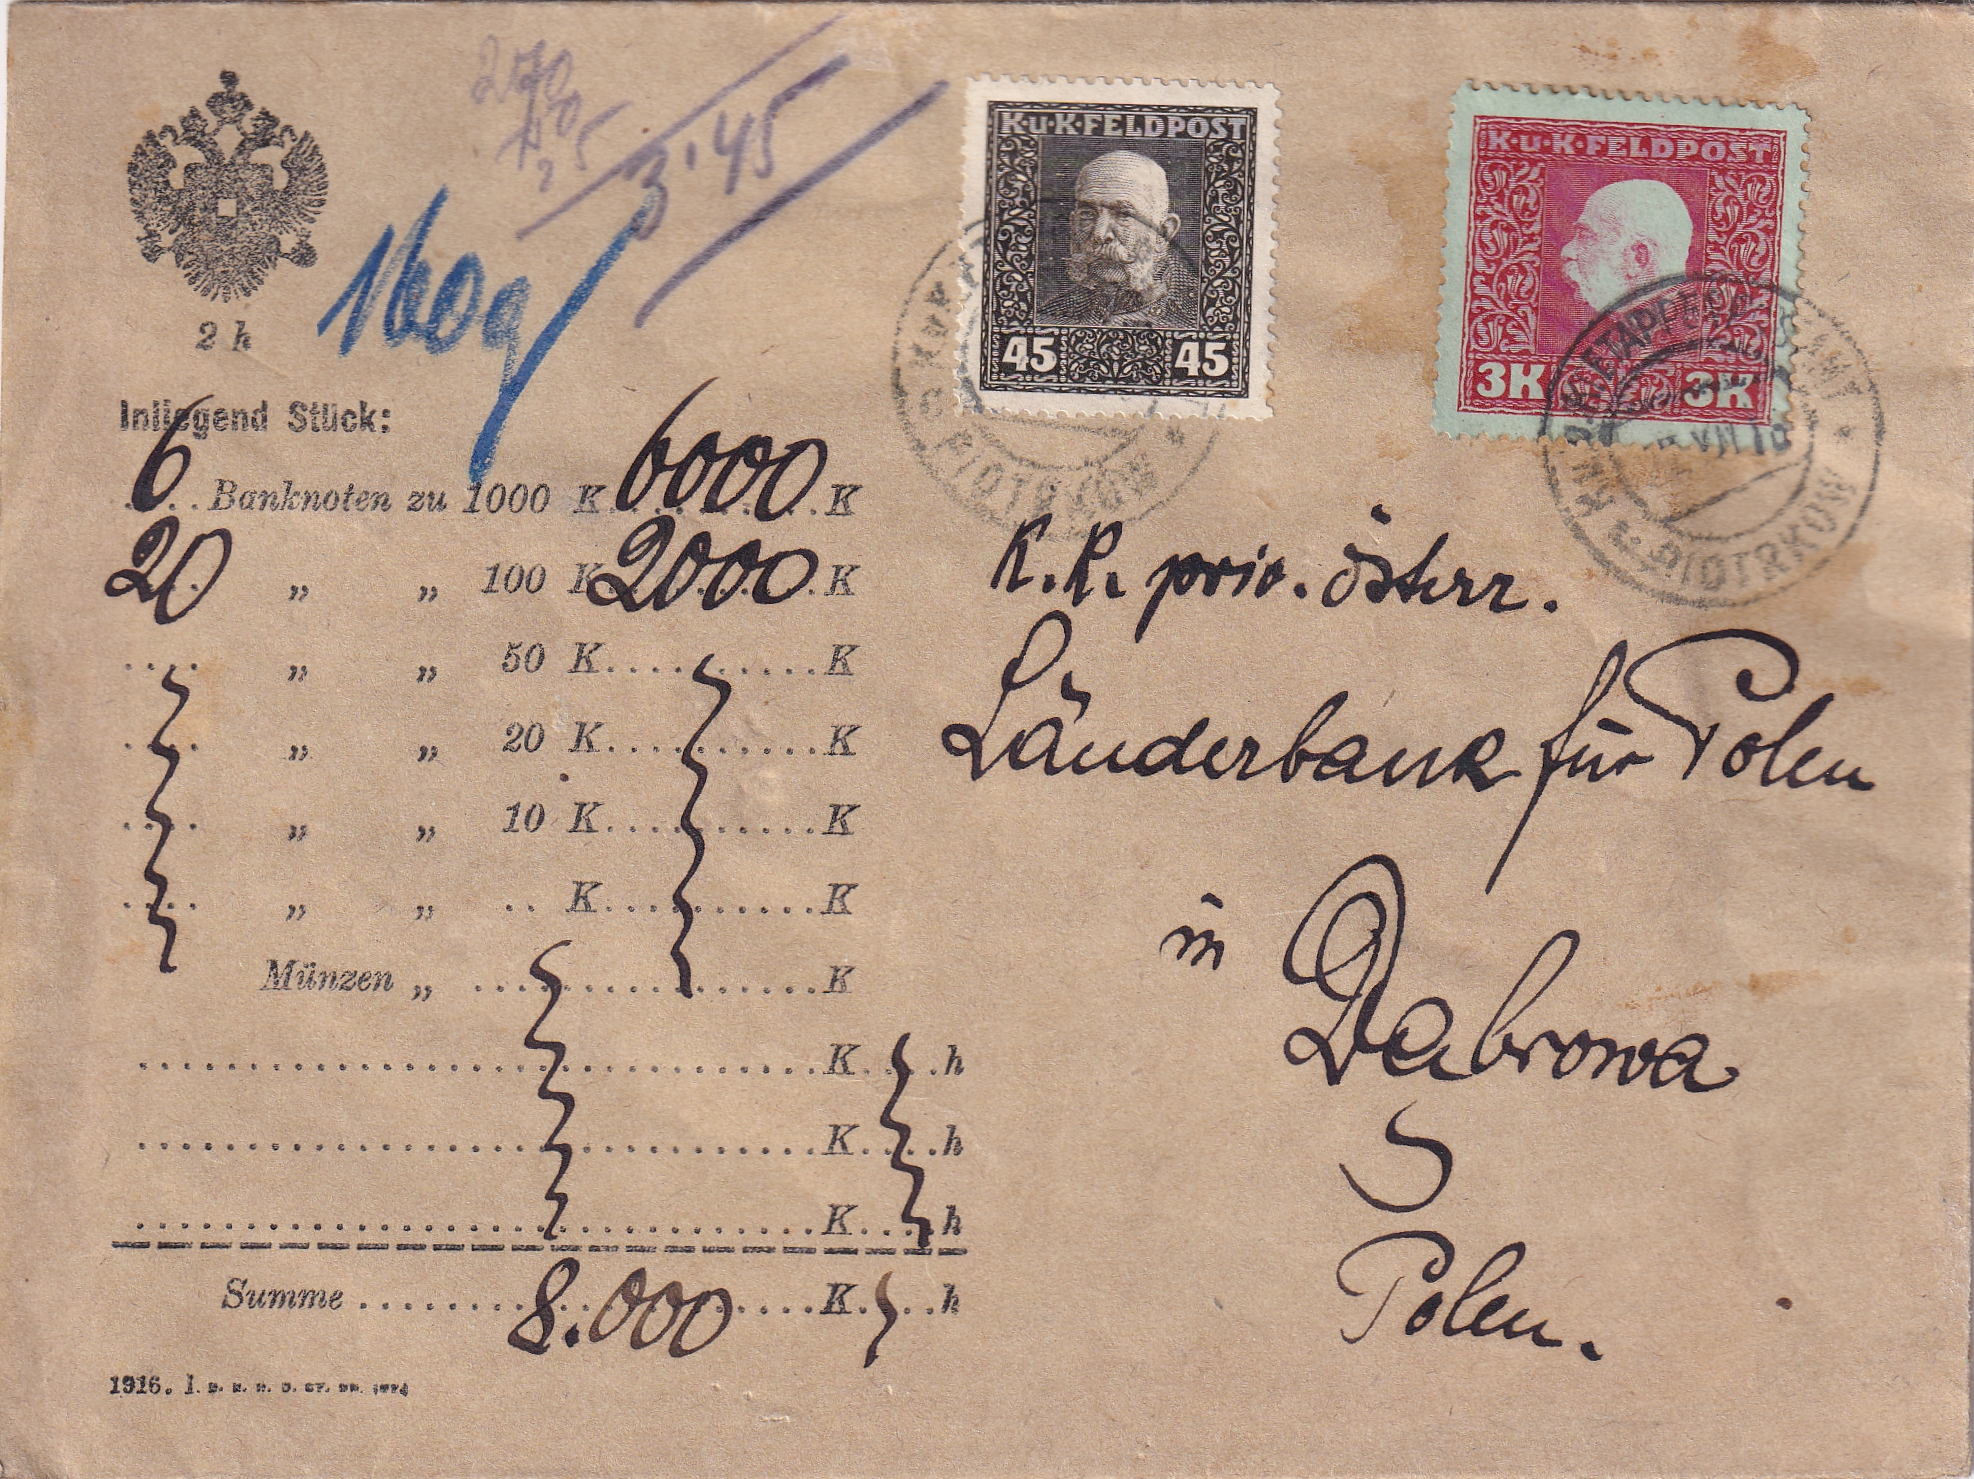 3·45
160g
K·u·K·FELDPOST
45 45
K·u·K·FELDPOST
3K 3K
2 h
Inliegend Stück:
6 Banknoten zu 1000 K 6000 K
20 „ „ 100 K 2000 K
.... „ „ 50 K...........K
.... „ „ 20 K...........K
.... „ „ 10 K...........K
.... „ „ .. K...........K
Münzen „ ..................K
K....h
K....h
K....h
Summe 8.000 K....h
1916.
PIOTRKÓW
K.u.K. ETAPPENPOSTAMT
PIOTRKÓW
K.K. priv. österr.
Länderbank für Polen
in Dabrowa
Polen.